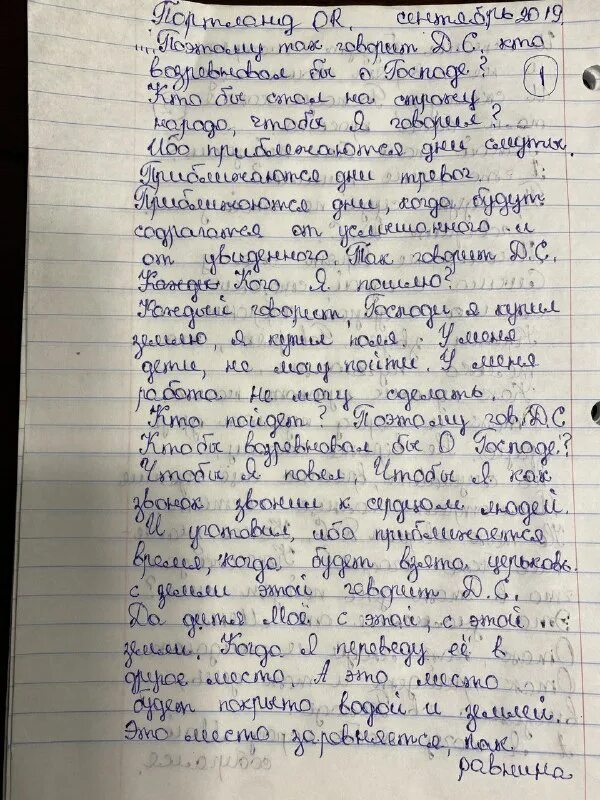 Портланд OR. сентябрь 2019.
"Поэтому так говорит Д.С., кто
возревновал бы о Господе?
1
Кто бы стал на стражу
народа, чтобы Я говорил?
Ибо приближаются дни смутни.
Приближаются дни тревог.
Приближаются дни, когда будут
содрагатся от услышанного и
от увиденного. Так говорит Д.С.
Кого Я пошлю?
Каждый говорит, Господи я купил
землю, я купил поля. У меня
дети, не могу пойти. У меня
работа не могу сделать.
Кто пойдет? Поэтому гов. Д.С
Кто бы возревновал бы О Господе?
Чтобы Я повел, Чтобы Я как
звонок звонил к сердцам людей.
И уготовил, ибо приближается
время, когда будет взята церьковь
с земли этой говорит Д.С.
Да дитя Моё с этой, с этой
земли. Когда Я переведу её в
другое место. А это место
будет покрыто водой и землей.
Это место заровняется, как
равнина